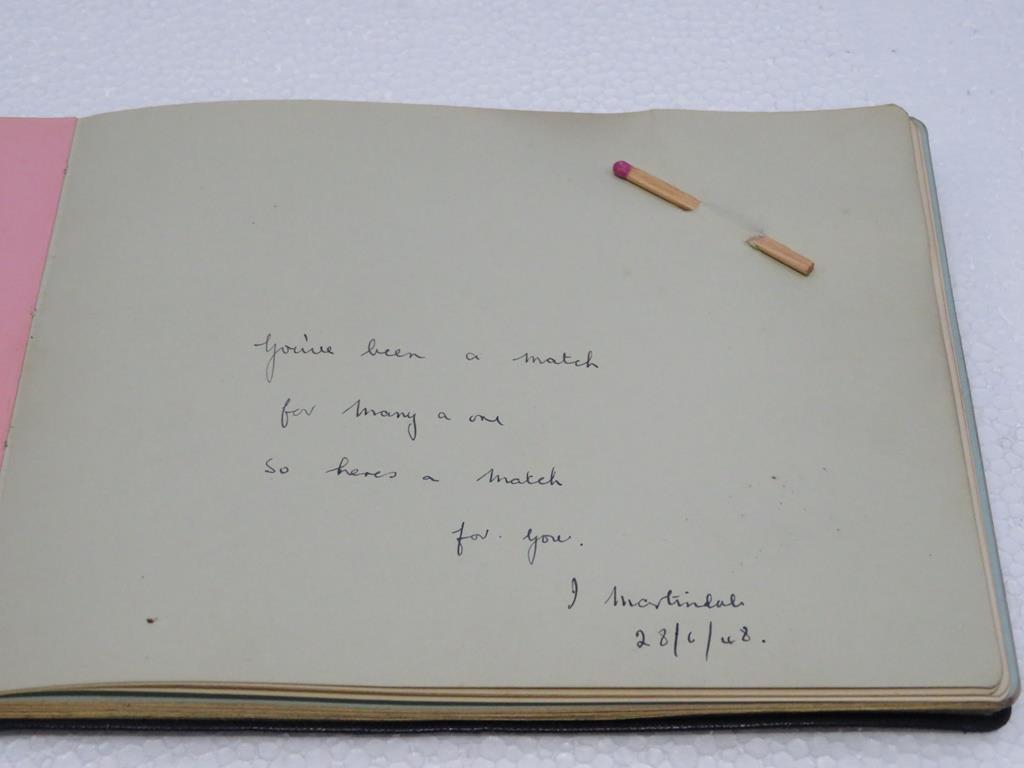 You've been a match
for many a one
So heres a match
for you.
I Martindale
28/6/48.